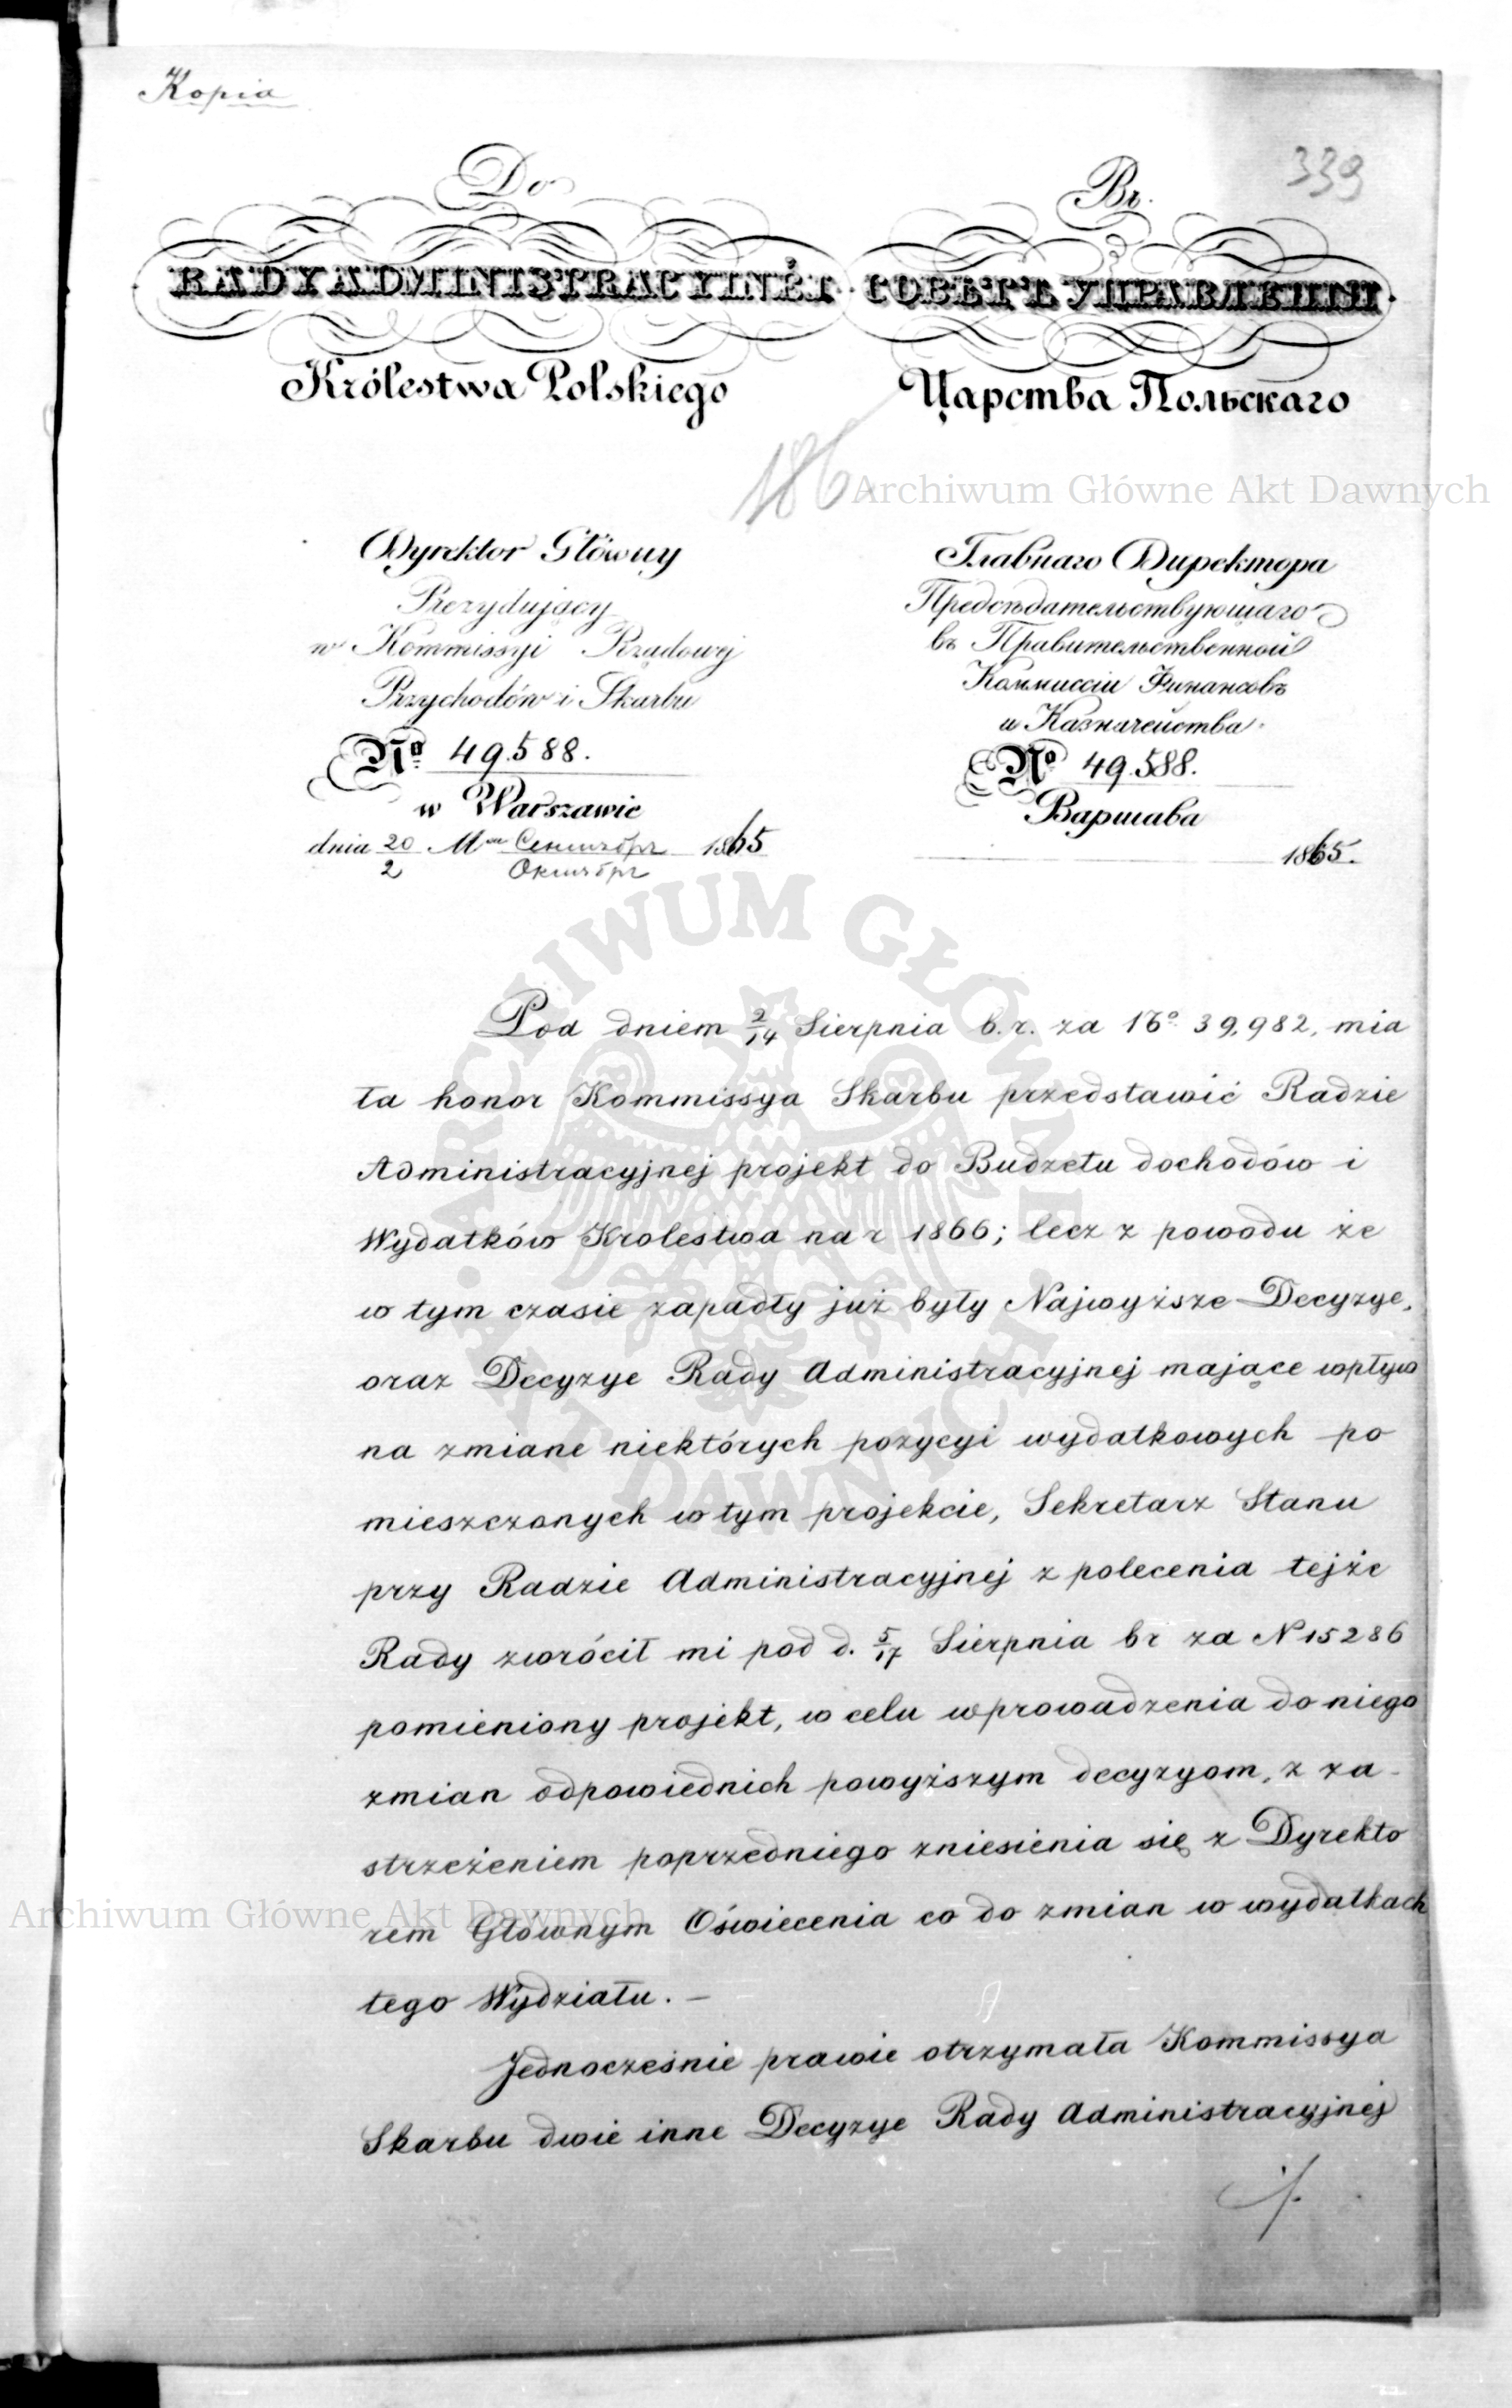 Kopia
339
Do
RADY ADMINISTRACYJNÉJ
Królestwa Polskiego
Въ
СОВѢТЪ УПРАВЛЕНІЯ
Царства Польскаго
186
Archiwum Główne Akt Dawnych
Dyrektor Główny
Prezydujący
w Kommissyi Rządowej
Przychodów i Skarbu
No 49.588.
w Warszawie
dnia 20/2 Mca Сентября/Октября 1865
Главнаго Директора
Предсѣдательствующаго
въ Правительственной
Коммиссіи Финансовъ
и Казначейства
No 49.588.
Варшава
1865.
Pod dniem 2/14 Sierpnia b.r. za No 39,982, mia
ła honor Kommissya Skarbu przedstawić Radzie
Administracyjnej projekt do Budzetu dochodów i
Wydatków Krolestwa na r 1866; lecz z powodu że
w tym czasie zapadły już były Najwyższe Decyzye,
oraz Decyzye Rady Administracyjnej mające wpływ
na zmiane niektórych pozycyi wydatkowych po
mieszczonych w tym projekcie, Sekretarz Stanu
przy Radzie Administracyjnej z polecenia tejże
Rady zwrócił mi pod d. 5/17 Sierpnia br za N 15286
pomieniony projekt, w celu wprowadzenia do niego
zmian odpowiednich powyższym decyzyom, z za-
strzeżeniem poprzedniego zniesienia się z Dyrekto
rem Głównym Oświecenia co do zmian w wydatkach
tego Wydziału. –
Jednocześnie prawie otrzymała Kommissya
Skarbu dwie inne Decyzye Rady Administracyjnej
./.
Archiwum Główne Akt Dawnych
ARCHIWUM GŁÓWNE AKT DAWNYCH